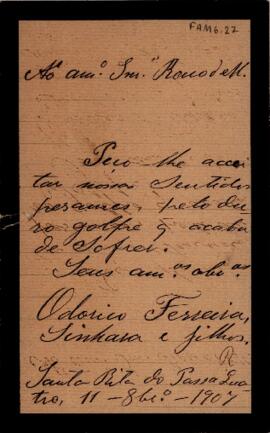 FAM6.22
Ao am.º Snr.
Peço-lhe accei
tar nossos Sentidos
pesames, pelo du
ro golpe q̃ acaba
de Sofrer.
Seus am.ºs obr.ºs
Odorico Ferreira,
Sinhara e filhos.
Santa Rita do Passa Qua
tro, 11-8br.º-1907